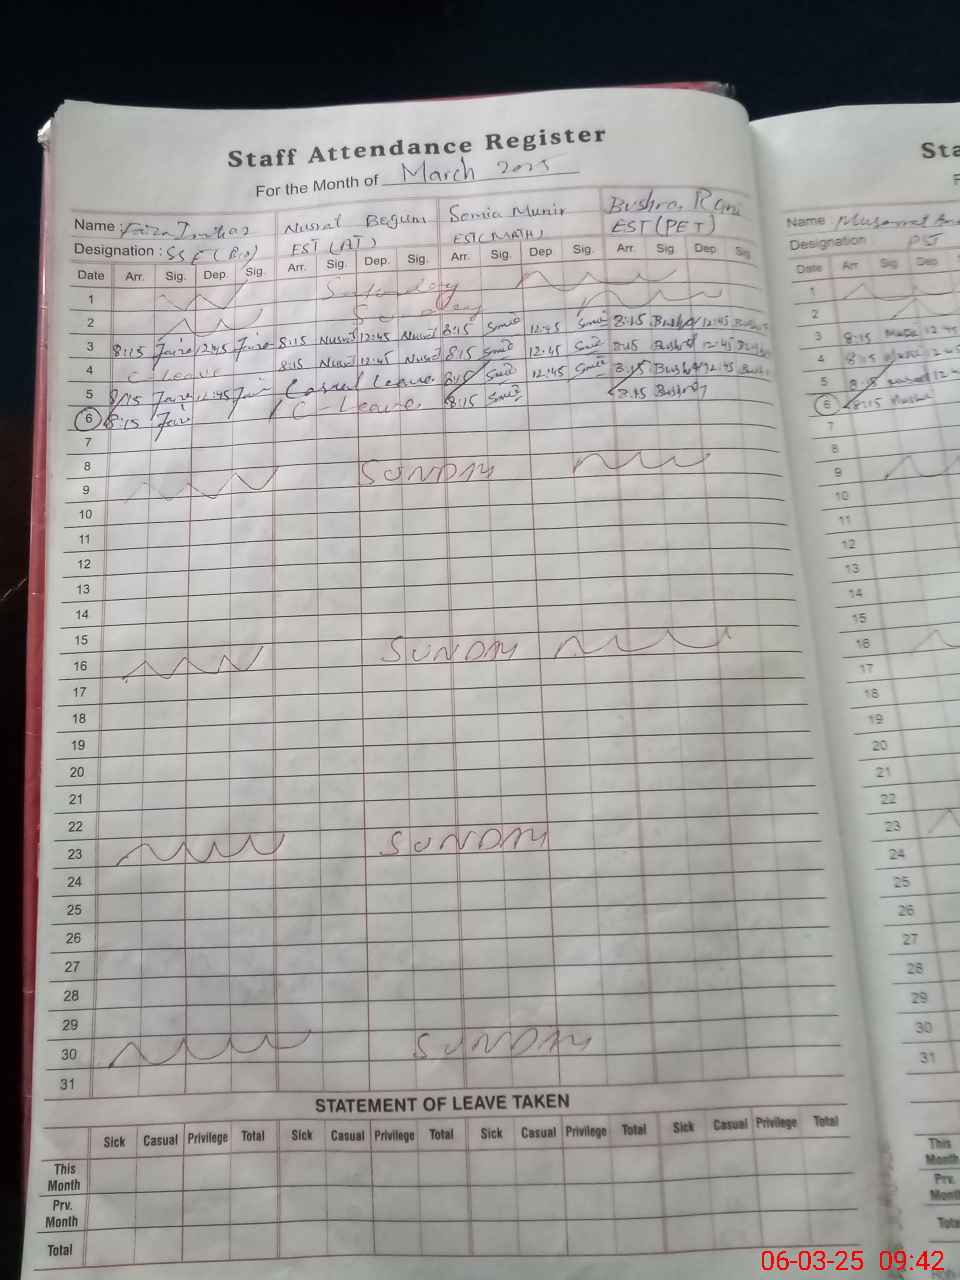 Staff Attendance Register
For the Month of March 2025
Name : Faiza Imtiaz Nusrat Begum Somia Munir Bushra Rani
Designation : SSE (Bio) EST (AT) EST (MATH) EST (PET)
Date Arr. Sig. Dep. Sig. Arr. Sig. Dep. Sig. Arr. Sig. Dep Sig. Arr. Sig. Dep. Sig.
1 Saturday
2 Sunday
3 8:15 Faiza 12:45 Faiza 8:15 Nusrat 12:45 Nusrat 8:15 12:45 8:15 Bushra 12:45 Bushra
4 C-Leave 8:15 Nusrat 12:45 Nusrat 8:15 12:45 8:15 Bushra 12:45 Bushra
5 8:15 12:45 Casual Leave 8:15 12:45 8:15 Bushra 12:45 Bushra
6 8:15 C-Leave 8:15 8:15 Bushra
7
8
9 SUNDAY
10
11
12
13
14
15
16 SUNDAY
17
18
19
20
21
22
23 SUNDAY
24
25
26
27
28
29
30 SUNDAY
31
STATEMENT OF LEAVE TAKEN
Sick Casual Privilege Total Sick Casual Privilege Total Sick Casual Privilege Total Sick Casual Privilege Total
This Month
Prv. Month
Total
Sta
Name : Musarrat
Designation PET
Date Arr Sig. Dep
1
2
3 8:15 12:45
4 8:15 12:45
5 8:15 12:4
6 8:15
7
8
9
10
11
12
13
14
15
16
17
18
19
20
21
22
23
24
25
26
27
28
29
30
31
This Month
Prv. Month
Total
06-03-25 09:42